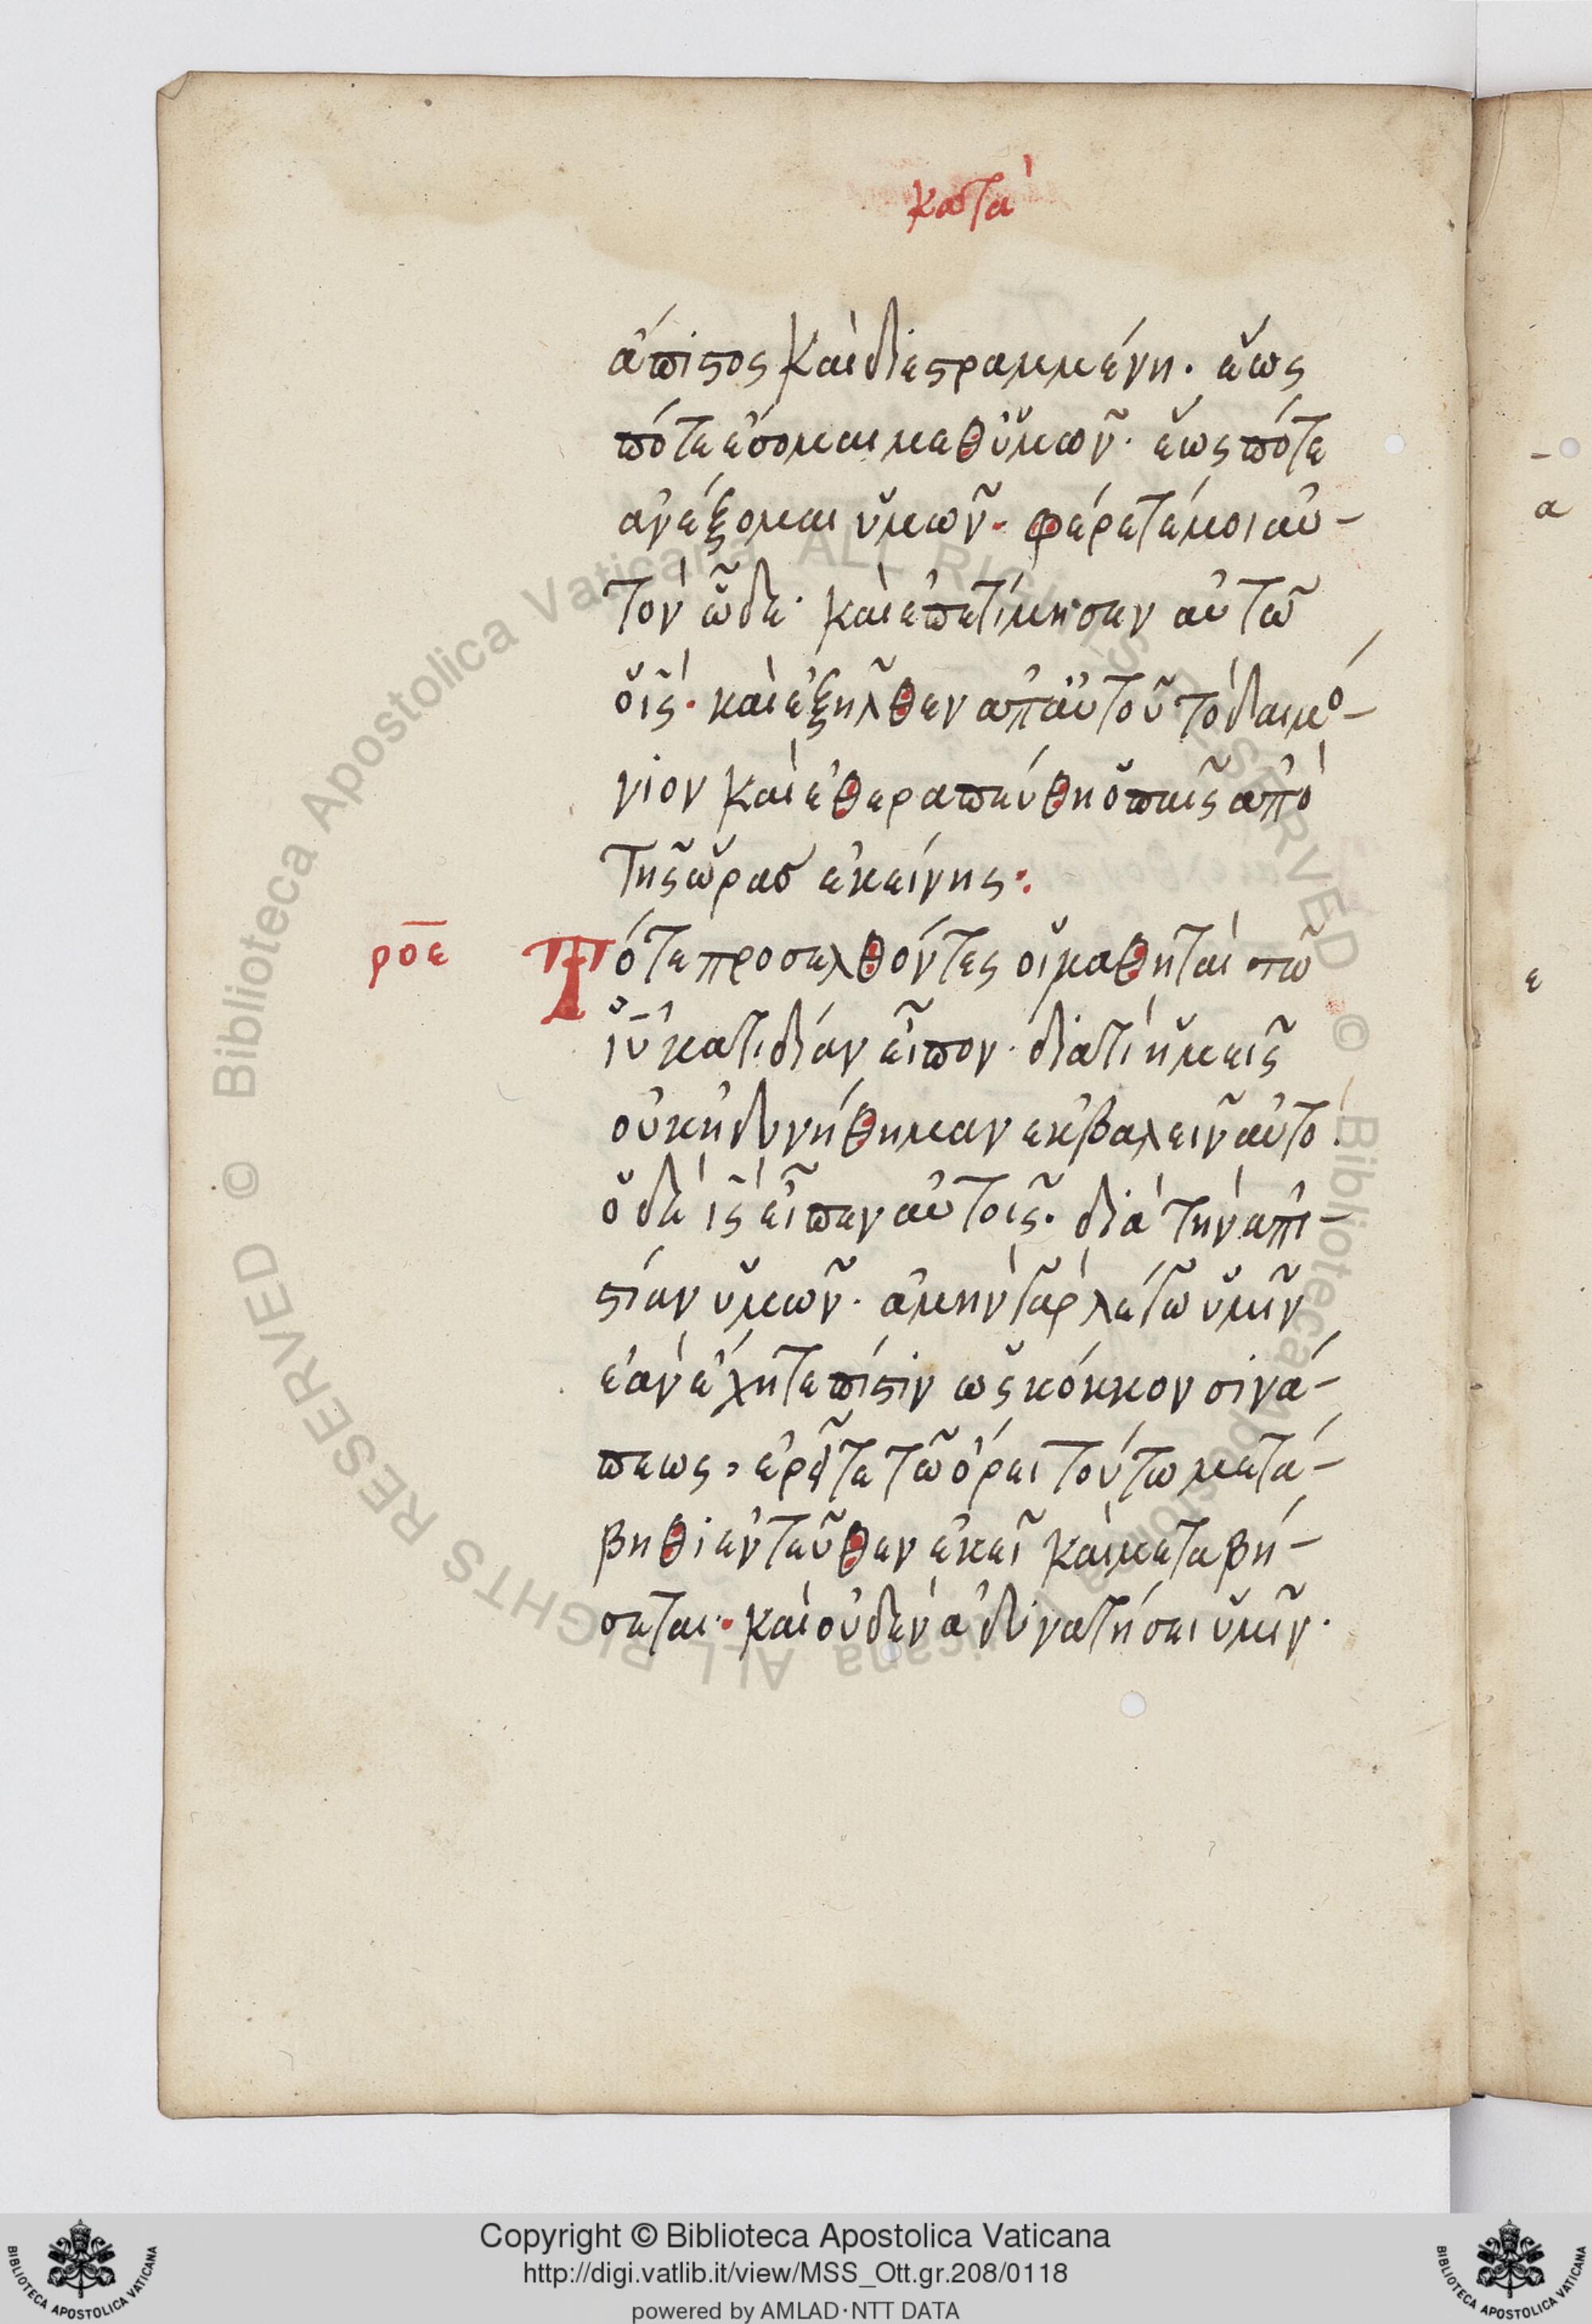 κατὰ
ἄπιστος καὶ διεστραμμένη· ἕως
πότε ἔσομαι μεθ ὑμῶν· ἕως πότε
ἀνέξομαι ὑμῶν· φέρετέ μοι αὐ-
τὸν ὧδε· καὶ ἐπετίμησεν αὐτῶ
ὁ ις· καὶ ἐξῆλθεν ἀπ αὐτοῦ τὸ δαιμό-
νιον καὶ ἐθεραπεύθη ὁ παῖς ἀπὸ
τῆς ὥρας ἐκείνης:
ροε Τότε προσελθόντες οἱ μαθηταὶ τῶ
ιυ κατιδίαν εἶπον· διατί ἡμεῖς
οὐκ ἠδυνήθημεν ἐκβαλεῖν αὐτὸ·
ὁ δὲ ις εἶπεν αὐτοῖς· διὰ τὴν ἀπι-
στίαν ὑμῶν· ἀμὴν γὰρ λέγω ὑμῖν
ἐὰν ἔχητε πίστιν ὡς κόκκον σινά-
πεως, ἐρεῖτε τῶ ὄρει τούτω μετά-
βηθι ἐντεῦθεν ἐκεῖ καὶ μεταβή-
σεται· καὶ οὐδὲν ἀδυνατήσει ὑμῖν·
- α
ε
Copyright © Biblioteca Apostolica Vaticana
http://digi.vatlib.it/view/MSS_Ott.gr.208/0118
powered by AMLAD·NTT DATA
BIBLIOTECA APOSTOLICA VATICANA
BIBLIOTECA APOSTOLICA VATICANA
© Biblioteca Apostolica Vaticana ALL RIGHTS RESERVED © Biblioteca Apostolica Vaticana ALL RIGHTS RESERVED